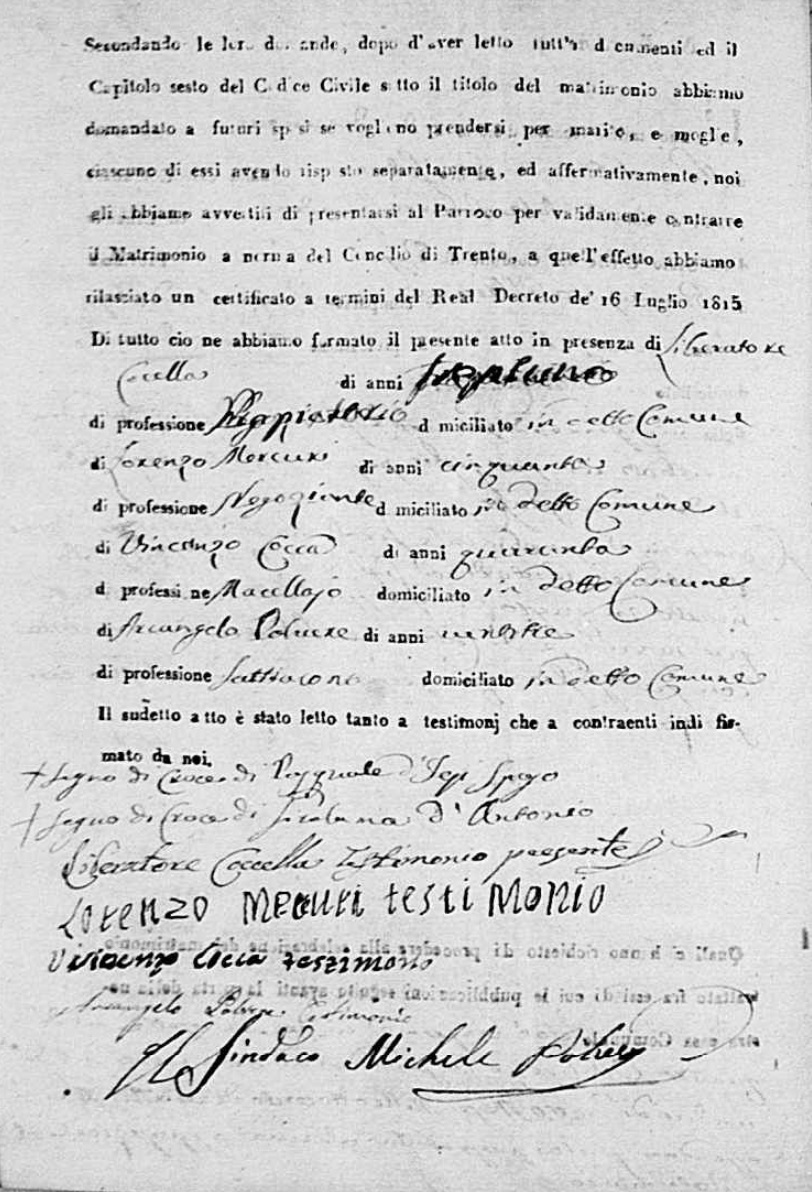 Secondando le loro domande, dopo d'aver letto tutt'i documenti ed il
Capitolo sesto del Codice Civile sotto il titolo del matrimonio abbiamo
domandato a futuri sposi se vogliono prendersi per marito, e moglie,
ciascuno di essi avendo risposto separatamente, ed affermativamente, noi
gli abbiamo avvertiti di presentarsi al Parroco per validamente contrarre
il Matrimonio a norma del Concilio di Trento, a quell'effetto abbiamo
rilasciato un certificato a termini del Real Decreto de' 16 Luglio 1815
Di tutto cio ne abbiamo formato il presente atto in presenza di Liberatore
Coccella di anni
di professione domiciliato in detto Comune
di Lorenzo Mercuri di anni cinquanta
di professione Negoziante domiciliato in detto Comune
di Vincenzo Cocca di anni quaranta
di professione Macellajo domiciliato in detto Comune
di Arcangelo di anni ventitre
di professione domiciliato in detto Comune
Il sudetto atto è stato letto tanto a testimonj che a contraenti indi fir-
mato da noi.
+ Segno di Croce di Pasquale Sposo
+ Segno di Croce di d'Antonio
Liberatore Coccella testimonio presente
Lorenzo Mercuri testimonio
Vincenzo Cocca testimonio
Arcangelo testimonio
Il Sindaco Michele